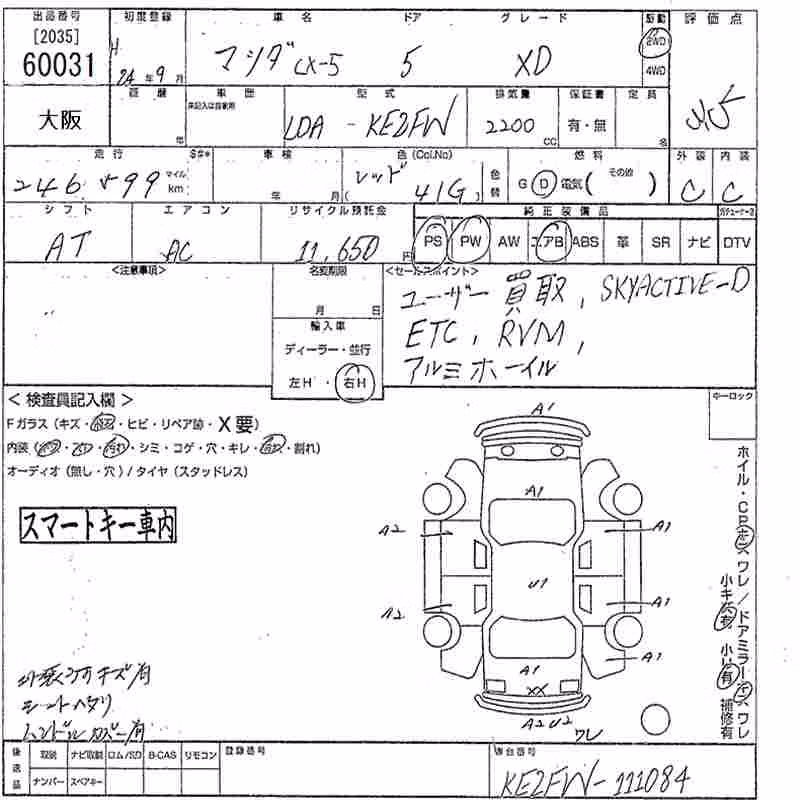 出品番号 初度登録 車名 ドア グレード 駆動 評価点
[2035]
60031 H 24 年 9 月 マツダ CX-5 5 XD 2WD
4WD
大阪 車歴 車歴 型式 排気量 保証書 定員
未記入は自家用
LDA - KE2FW 2200 cc 有・無 名
年
走行 S#* 車検 色(Col.No) 燃料 外装 内装
246,599 マイル km: 年 月 ( レッド 41G ) 色替 G D 電気( その他 ) C C
シフト エアコン リサイクル預託金 純正装備品
AT AC 11,650 円 PS PW AW エアB ABS 革 SR ナビ DTV
<注意事項> 名変期限 <セールスポイント>
月 日 ユーザー買取, SKYACTIVE-D
輸入車 ETC, RVM,
ディーラー・並行 アルミホーイル
左H・右H
<検査員記入欄> キーロック
Fガラス(キズ・ ・ヒビ・リペア跡・X要)
内装( ・ ・ ・シミ・コゲ・穴・キレ・ ・割れ)
オーディオ(無し・穴)/タイヤ(スタッドレス)
スマートキー車内
A1
A1
A2 A1
U1
A2 A1
A1
A1
XX
A2 U2
ワレ
ホイル・CPキズ ワレ/ドアミラーキズ ワレ
小キズ有 小U有 補修有
キズ有
シートヘタリ
ハンドルカバー有
後送品 取説 ナビ取説 ロム/SD B-CAS リモコン 登録番号 車台番号
ナンバー スペアキー KE2FW-111084